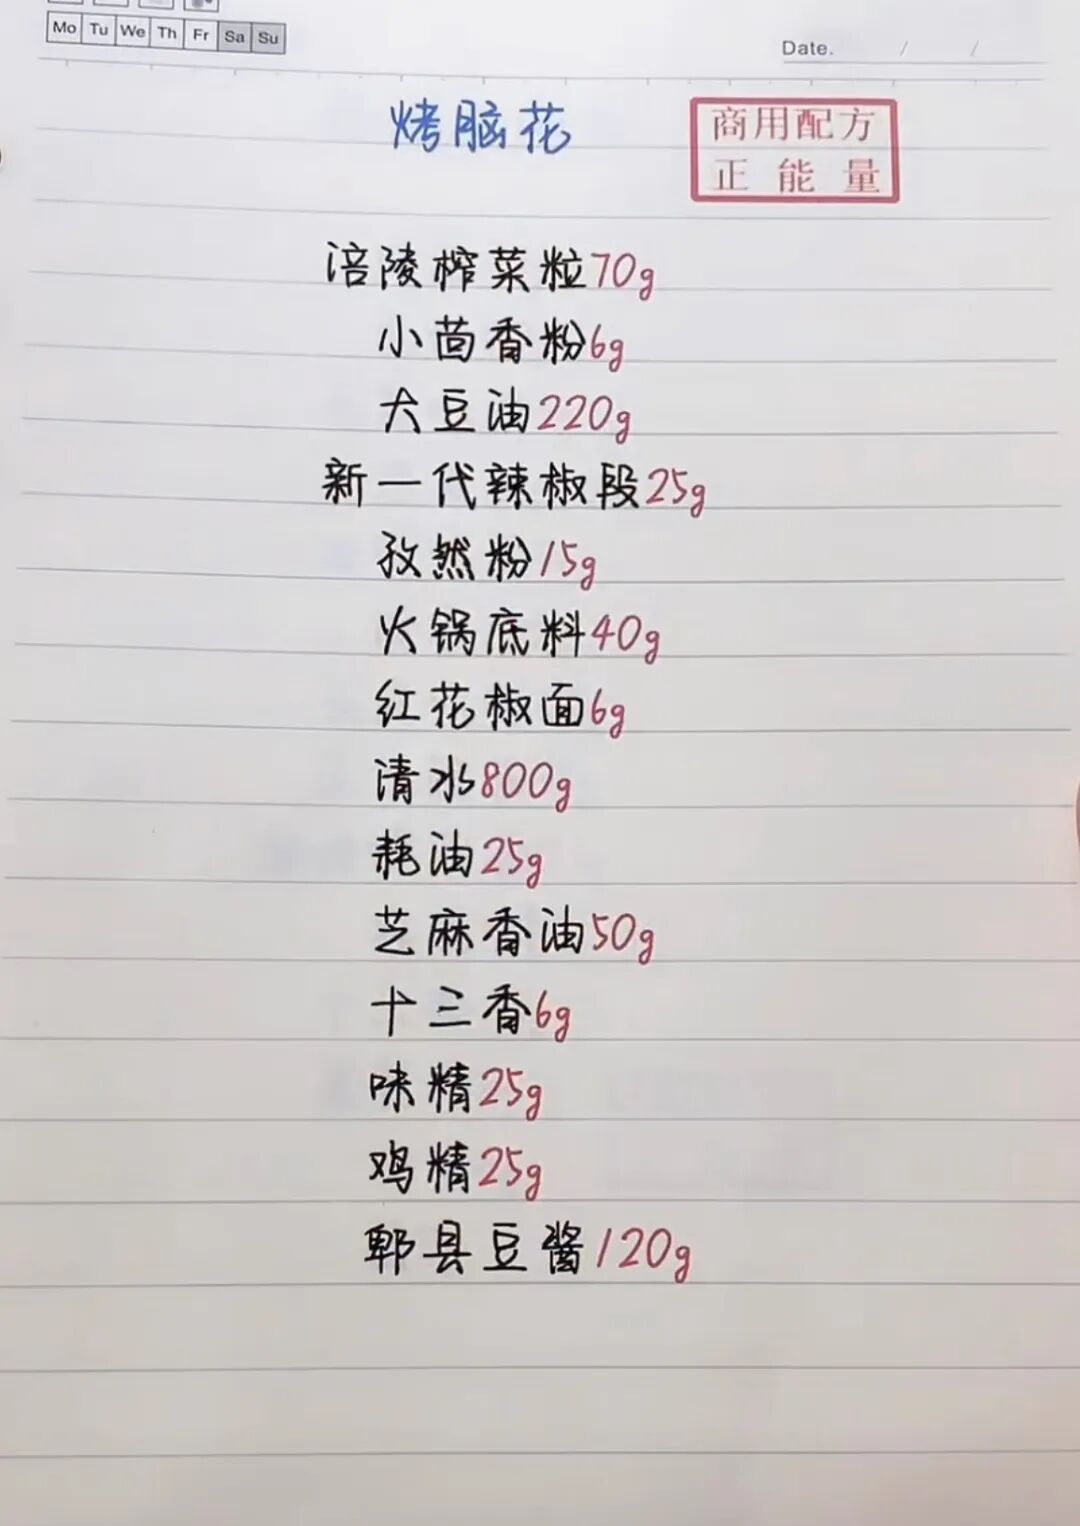 Mo Tu We Th Fr Sa Su
Date. / /
烤脑花
商用配方
正能量
涪陵榨菜粒70g
小茴香粉6g
大豆油220g
新一代辣椒段25g
孜然粉15g
火锅底料40g
红花椒面6g
清水800g
耗油25g
芝麻香油50g
十三香6g
味精25g
鸡精25g
郫县豆酱120g